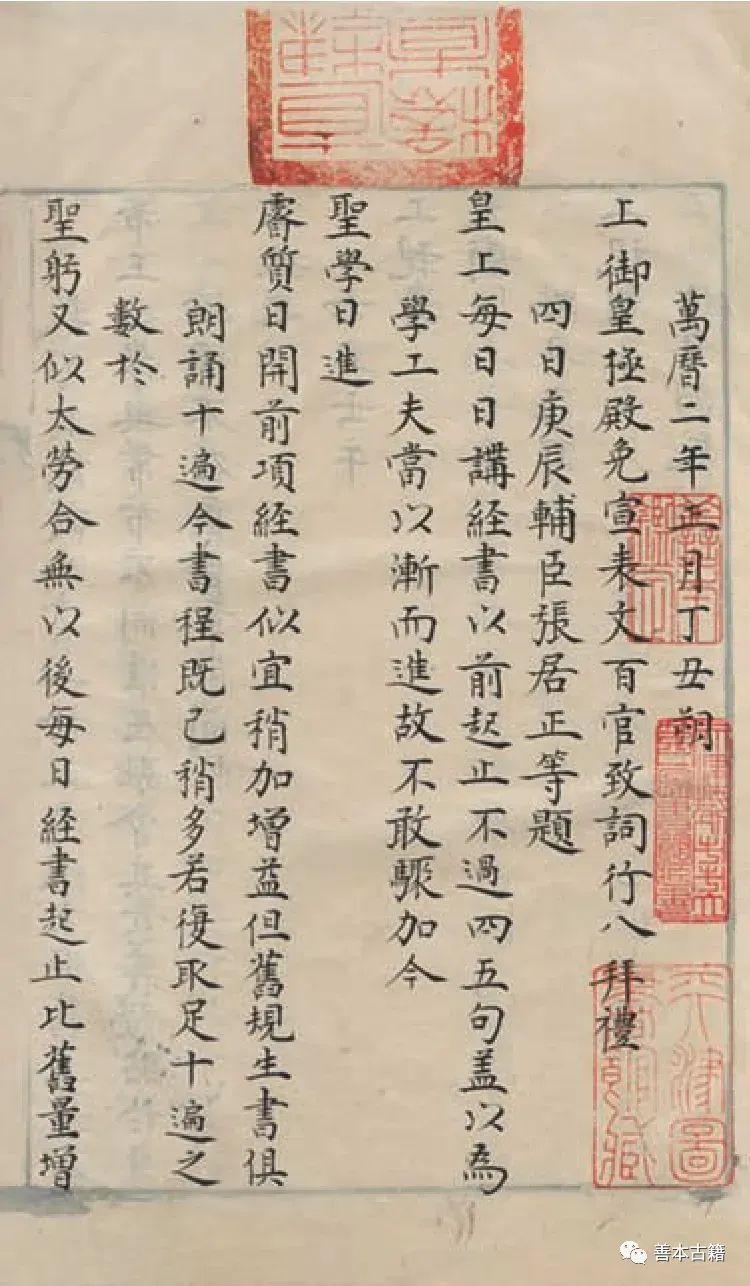 萬曆二年正月丁丑朔
上御皇極殿免宣表文百官致詞行八拜禮
四日庚辰輔臣張居正等題
皇上每日日講経書以前起止不過四五句盖以為
學工夫當以漸而進故不敢驟加今
聖學日進
睿質日開前項経書似宜稍加增益但舊規生書俱
朗誦十遍今書程既已稍多若復取足十遍之
數於
聖躬又似太勞合無以後每日経書起止比舊量增
善本古籍